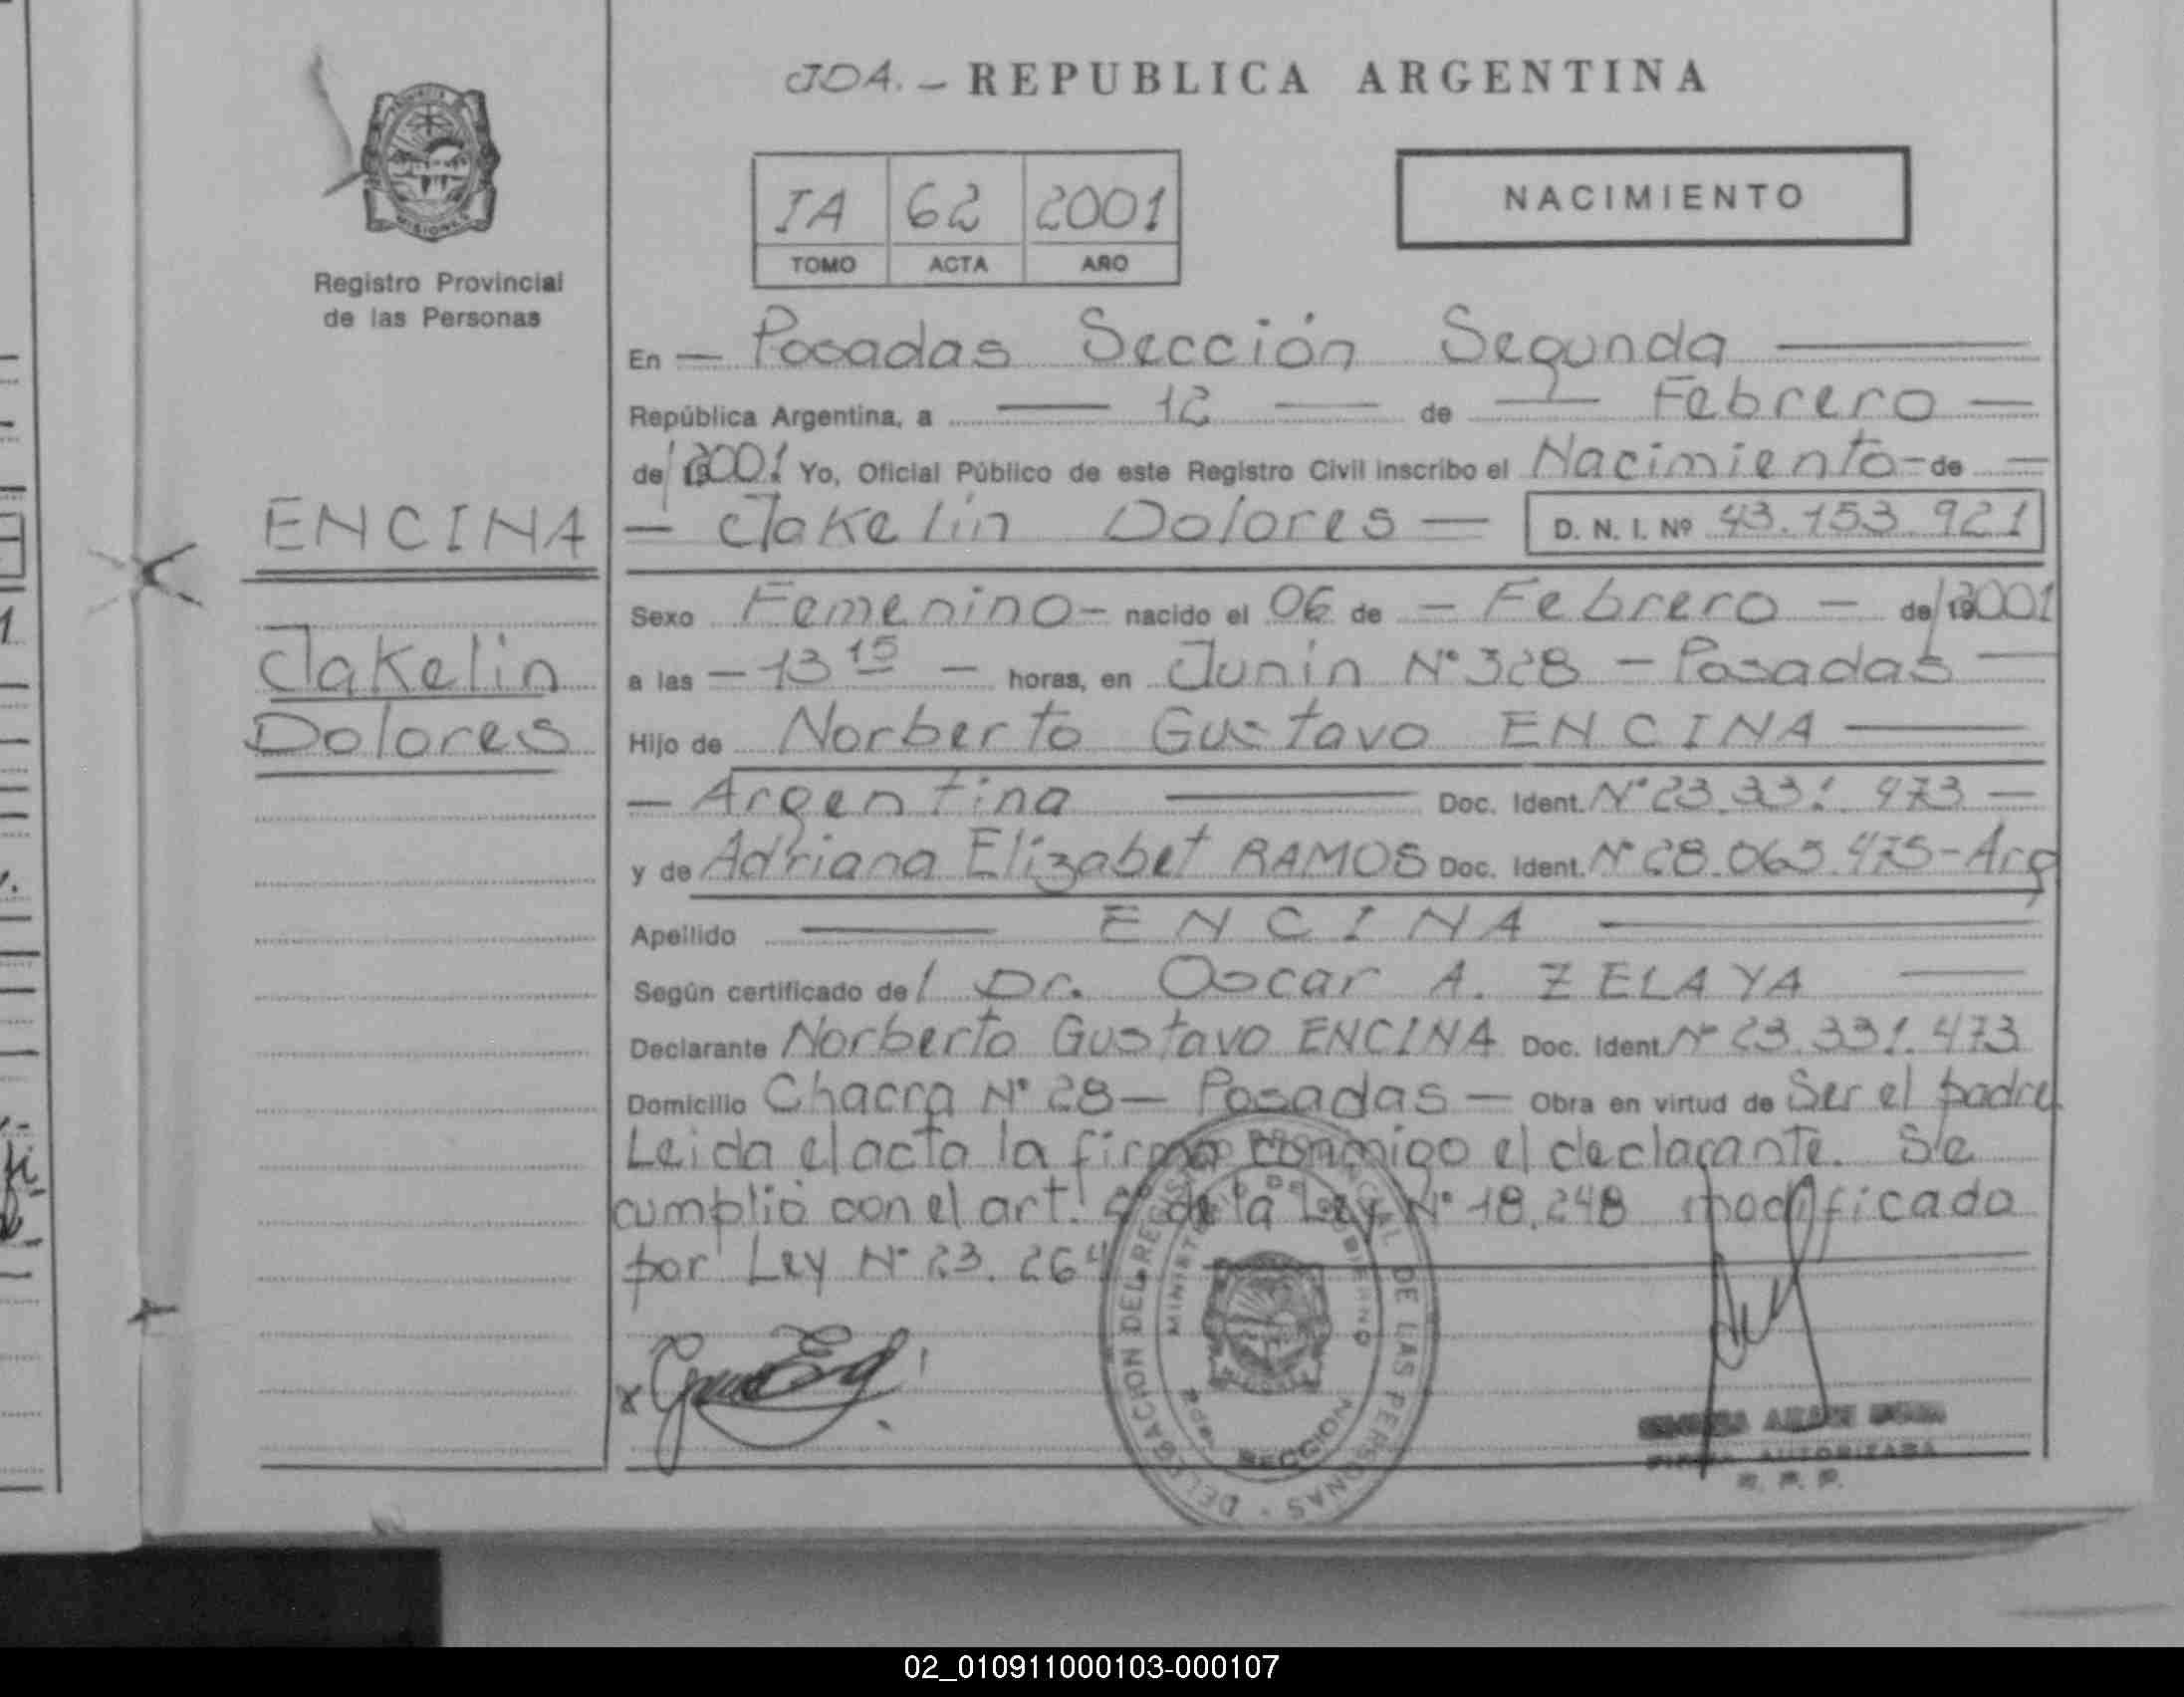 JDA. - REPUBLICA ARGENTINA
IA 62 2001
TOMO ACTA AÑO
NACIMIENTO
Registro Provincial
de las Personas
En — Posadas Sección Segunda —
República Argentina, a — 12 — de — Febrero —
de 2001 Yo, Oficial Público de este Registro Civil inscribo el Nacimiento - de —
ENCINA
— Jakelin Dolores — D. N. I. Nº 43.153.921
Sexo Femenino - nacido el 06 de — Febrero — de 2001
Jakelin
a las — 13 15 — horas, en Junin Nº 328 — Posadas —
Dolores
Hijo de Norberto Gustavo ENCINA —
— Argentina — Doc. Ident. Nº 23.331.473 —
y de Adriana Elizabet RAMOS Doc. Ident. Nº 28.065.475 - Arg
Apellido — ENCINA —
Según certificado de l Dr. Oscar A. ZELAYA —
Declarante Norberto Gustavo ENCINA Doc. Ident Nº 23.331.473
Domicilio Chacra Nº 28 — Posadas — Obra en virtud de Ser el padre
Leida el acta la firma conmigo el declarante. Se
cumplió con el art. de la Ley Nº 18.248 modificado
por Ley Nº 23.264 —
DELEGACION DEL REGISTRO PROVINCIAL DE LAS PERSONAS
MINISTERIO DE GOBIERNO
SECCION
FIRMA AUTORIZADA
R. P. P.
02_010911000103-000107